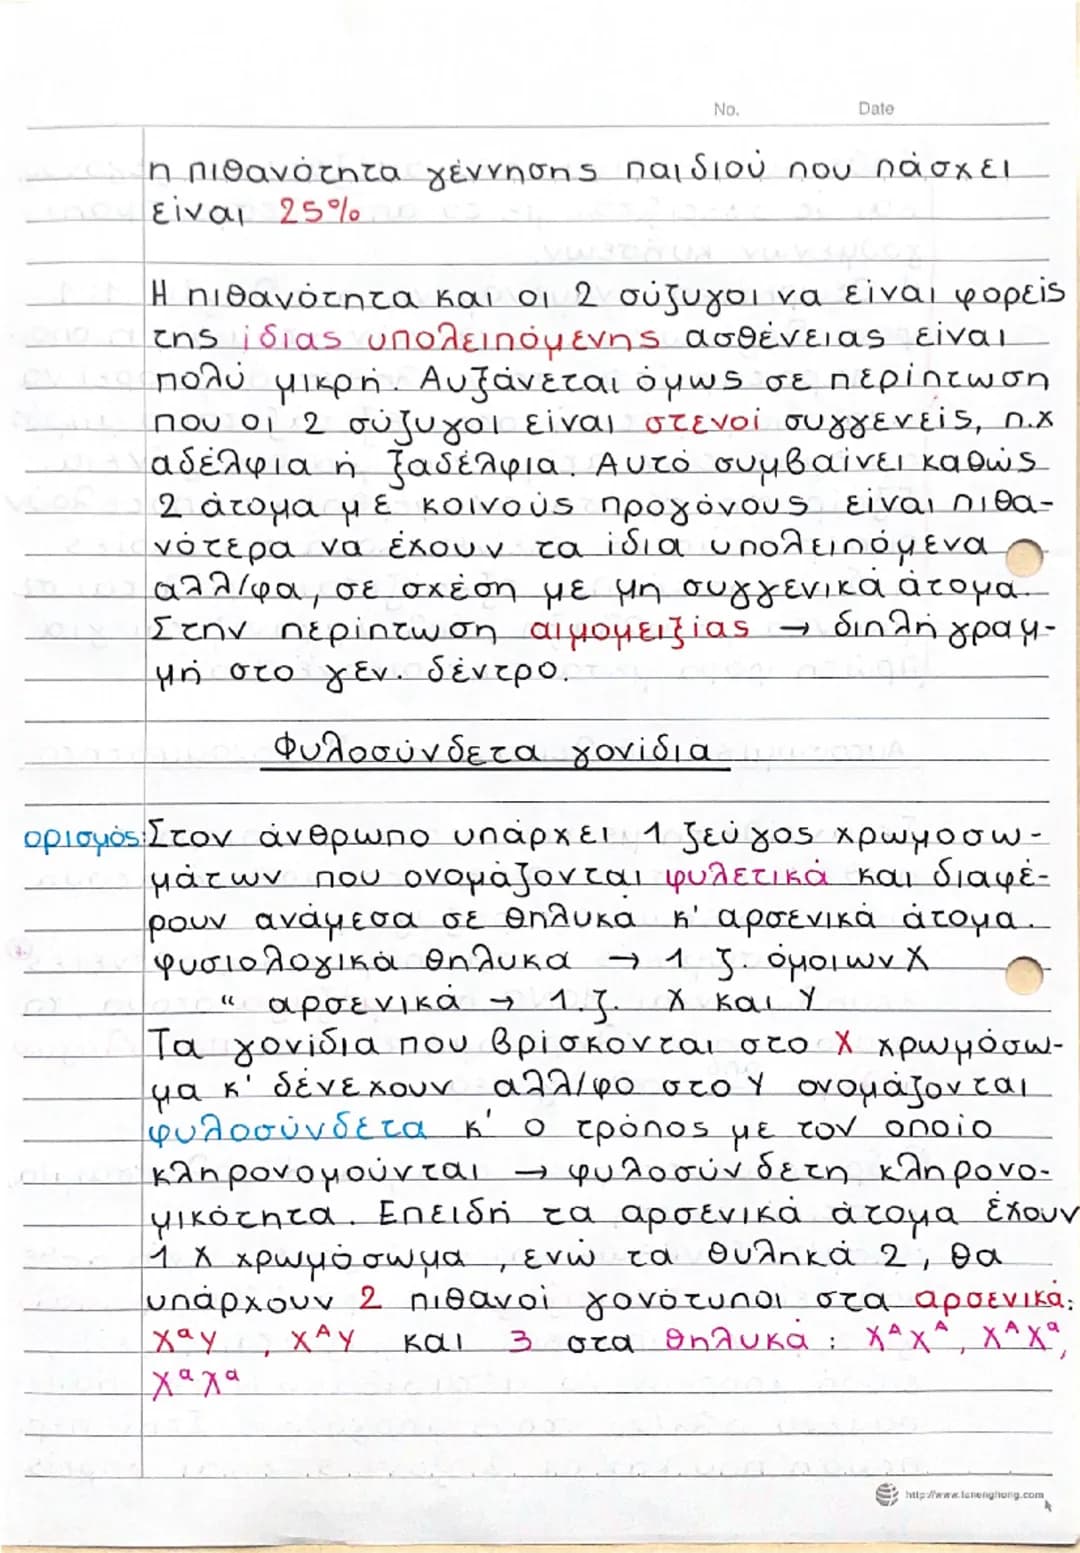 No. Date
η πιθανότητα γέννησης παιδιού που πάσχει
είναι 25%
Η πιθανότητα και οι 2 σύζυγοι να είναι φορείς
της ίδιας υπολειπόμενης ασθένειας είναι
πολύ μικρή. Αυξάνεται όμως σε περίπτωση
που οι 2 σύζυγοι είναι στενοί συγγενείς, π.χ
αδέλφια ή ξαδέλφια. Αυτό συμβαίνει καθώς
2 άτομα με κοινούς προγόνους είναι πιθα-
νότερα να έχουν τα ίδια υπολειπόμενα
αλλ/φα, σε σχέση με μη συγγενικά άτομα.
Στην περίπτωση αιμομειξίας → διπλή γραμ-
μή στο γεν. δέντρο.
Φυλοσύνδετα γονίδια
ορισμός: Στον άνθρωπο υπάρχει 1 ζεύγος χρωμοσω-
μάτων που ονομάζονται φυλετικά και διαφέ-
ρουν ανάμεσα σε θηλυκά κ' αρσενικά άτομα.
φυσιολογικά θηλυκα → 1 ζ. όμοιων Χ
" αρσενικά → 1.ζ. Χ και Υ
Τα γονίδια που βρίσκονται στο Χ χρωμόσω-
μα κ' δεν έχουν αλλ/φο στο Υ ονομάζονται
φυλοσύνδετα κ' ο τρόπος με τον οποίο
κληρονομούνται → φυλοσύνδετη κληρονο-
μικότητα. Επειδή τα αρσενικά άτομα έχουν
1 Χ χρωμόσωμα, ενώ τα θυληκά 2, θα
υπάρχουν 2 πιθανοί γονότυποι στα αρσενικά:
Χᵅy, Χᴬy και 3 στα θηλυκά: ΧᴬΧᴬ, ΧᴬΧᵅ,
ΧᵅΧᵅ
http://www.lanenghong.com